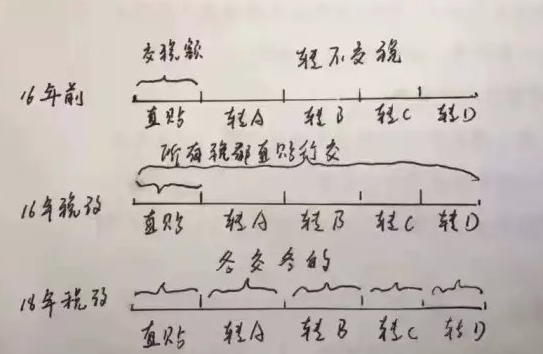 交税额 转不交税
16年前
直贴 转A 转B 转C 转D
所有税都直贴行交
16年税改
直贴 转A 转B 转C 转D
各交各的
18年税改
直贴 转A 转B 转C 转D